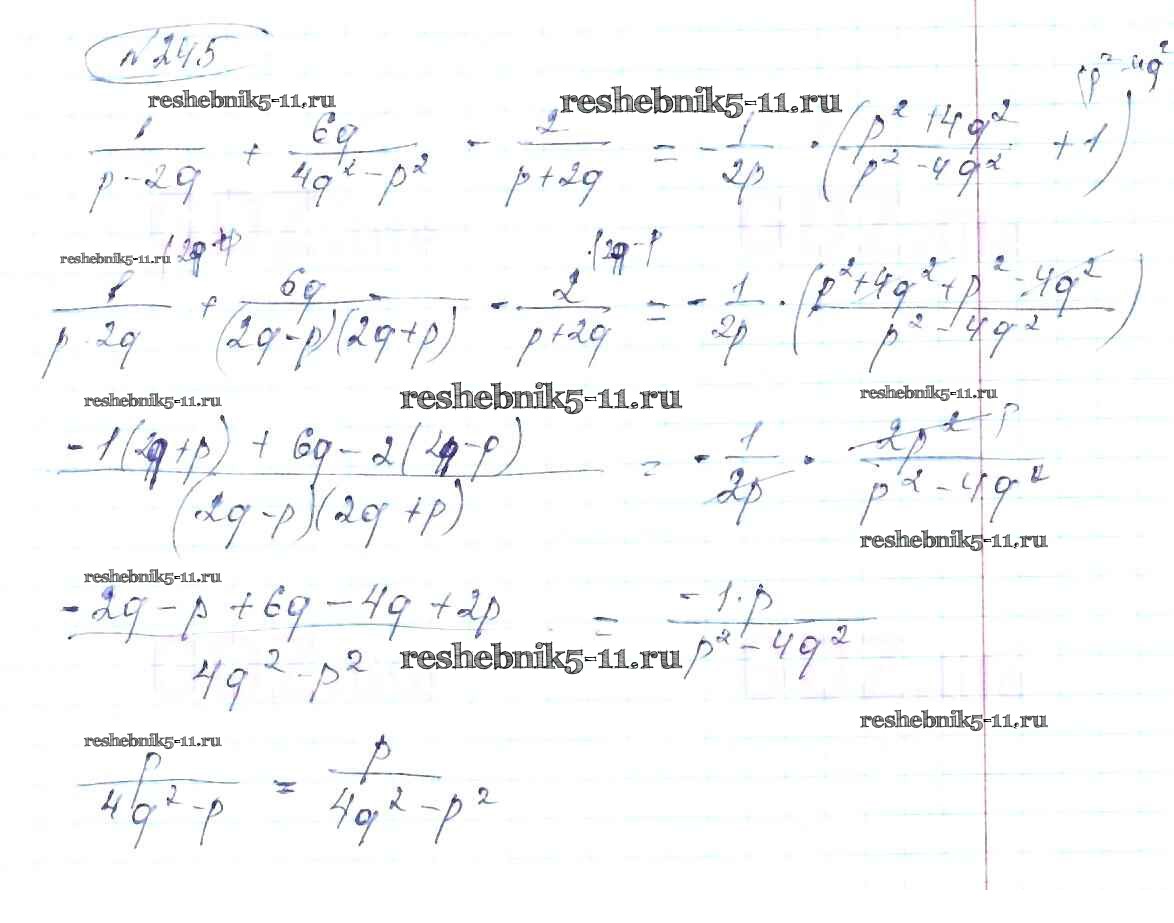 № 245
reshebnik5-11.ru reshebnik5-11.ru (p² - 4q²
1/(p - 2q) + 6q/(4q² - p²) - 2/(p + 2q) = - 1/2p · ((p² + 4q²)/(p² - 4q²) + 1)
reshebnik5-11.ru (2q + p ·(2q - p
1/(p - 2q) + 6q/((2q - p)(2q + p)) - 2/(p + 2q) = - 1/2p · ((p² + 4q² + p² - 4q²)/(p² - 4q²))
reshebnik5-11.ru reshebnik5-11.ru reshebnik5-11.ru
(-1(2q + p) + 6q - 2(2q - p))/((2q - p)(2q + p)) = - 1/2p · 2p² p/(p² - 4q²)
reshebnik5-11.ru
reshebnik5-11.ru
(-2q - p + 6q - 4q + 2p)/(4q² - p²) = (-1·p)/(p² - 4q²)
reshebnik5-11.ru
reshebnik5-11.ru
reshebnik5-11.ru
p/(4q² - p) = p/(4q² - p²)